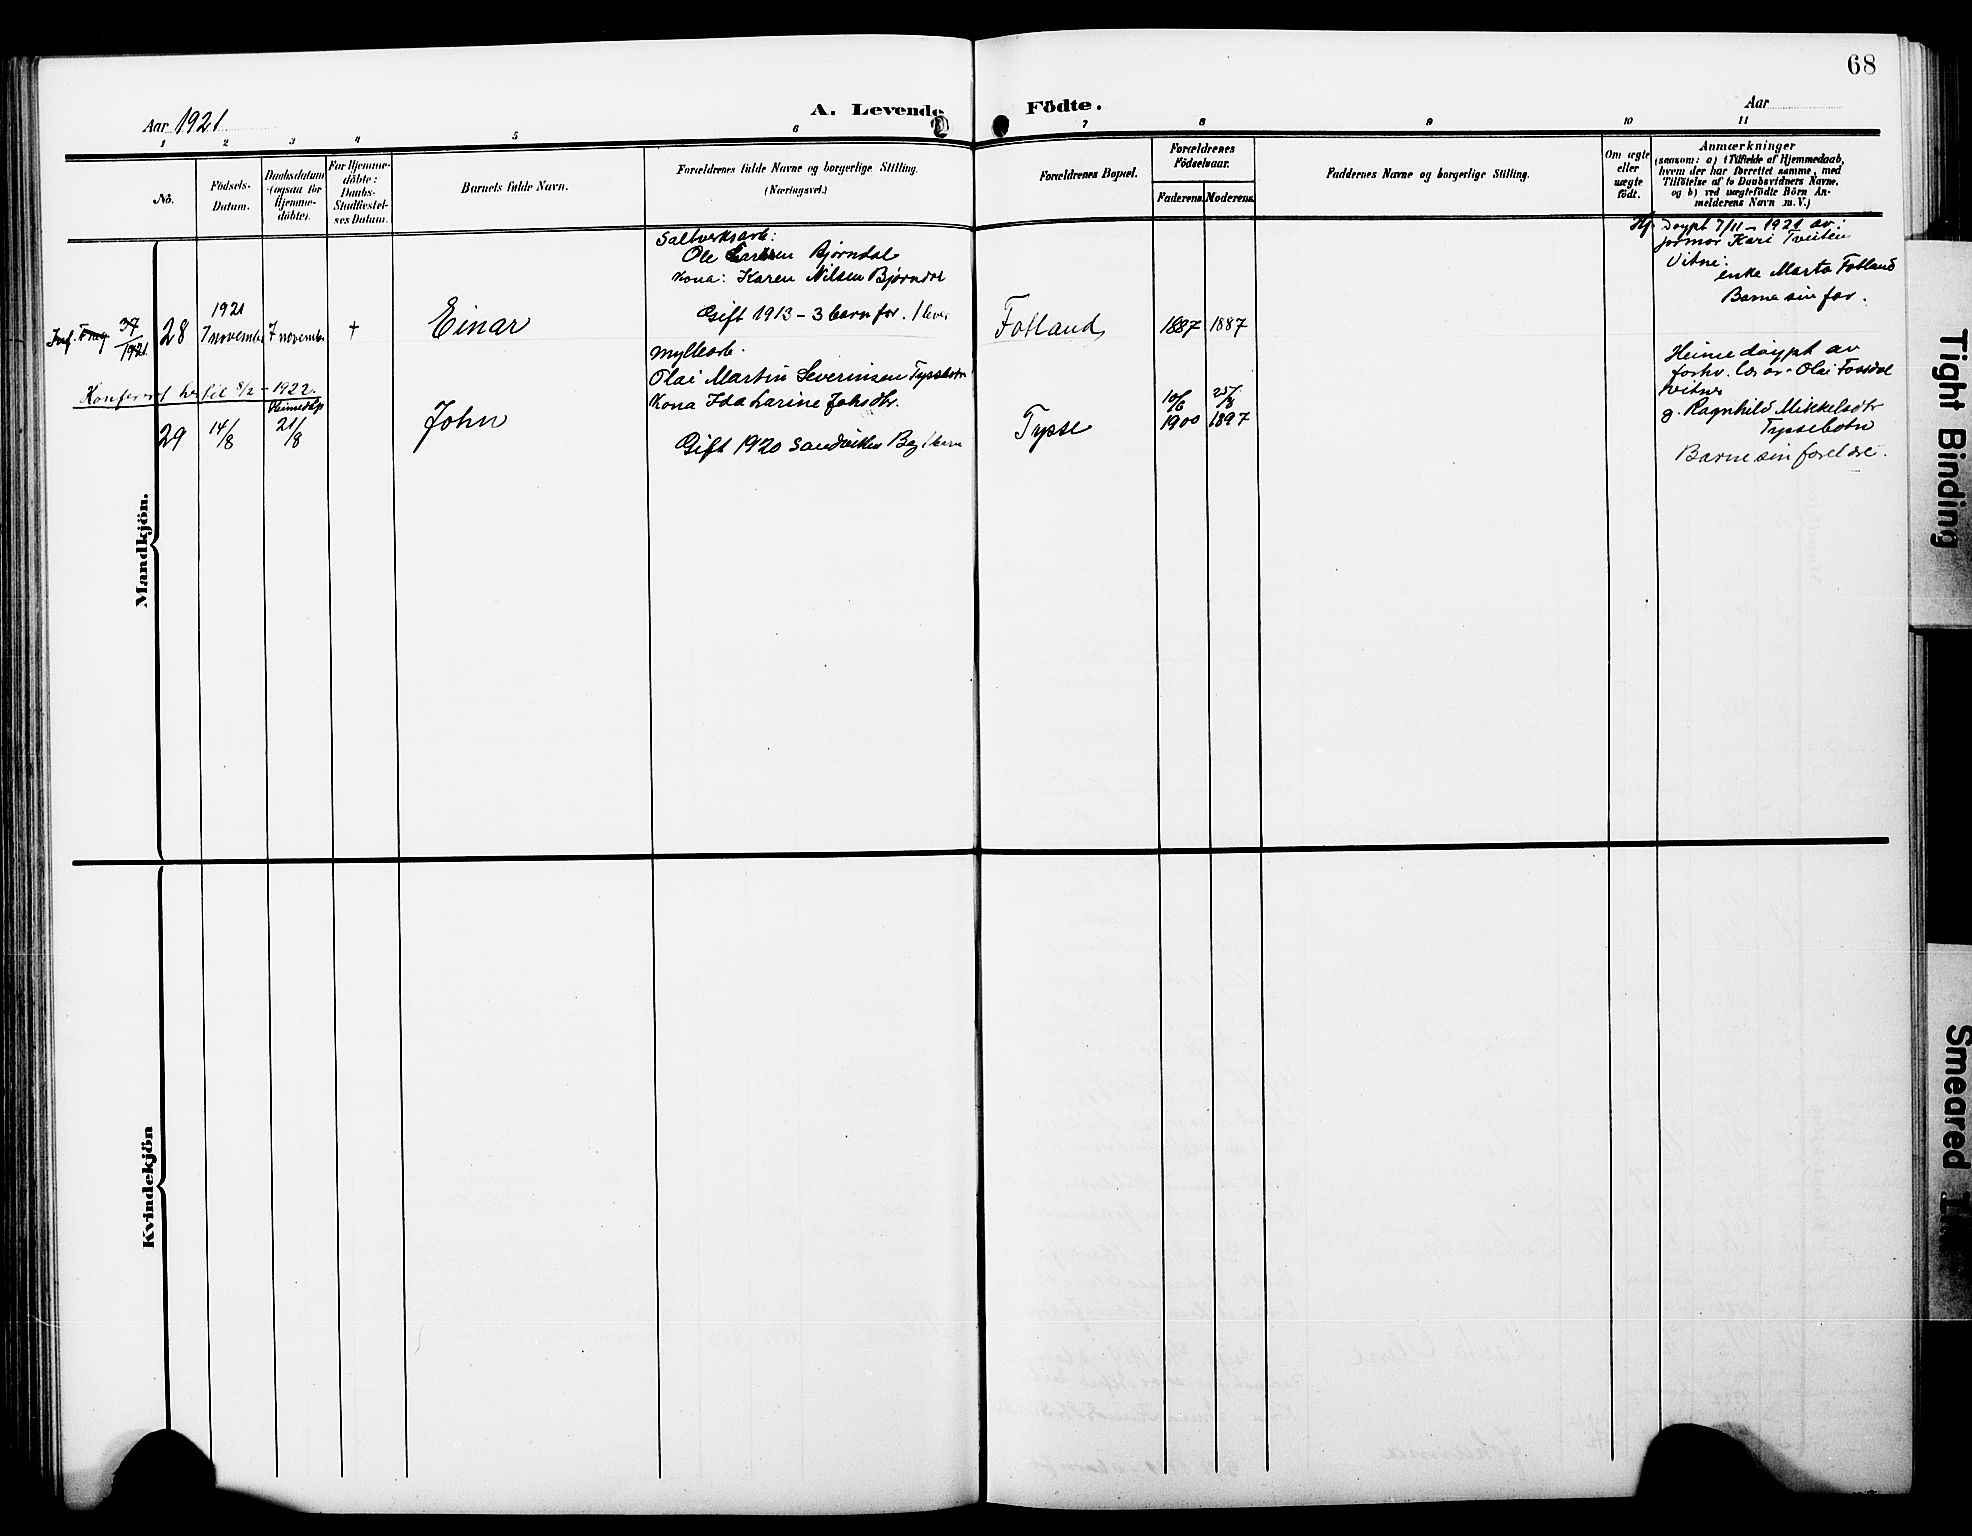 68
Aar 1921
A. Levende Födte.
Aar
1 2 3 4 5 6 7 8 9 10 11
No.
Födsels-
Datum.
Daabsdatum
(ogsaa for
Hjemme-
döbte).
For Hjemme-
döbte:
Daabs-
Stadfæstel-
ses Datum.
Barnets fulde Navn.
Forældrenes fulde Navne og borgerlige Stilling.
(Næringsvei.)
Forældrenes Bopæl.
Forældrenes
Födselsaar.
Faderens
Moderens
Faddernes Navne og borgerlige Stilling.
Om ægte
eller
uægte
født.
Anmærkninger
(saasom: a) i Tilfælde af Hjemmedaab,
hvem der har forrettet samme, med
Tilföielse af to Daabsvidners Navne,
og b) ved uægtefödte Börn An-
melderens Navn m. V.)
Mandkjön.
37/1921
28
1921
7 november
7 november
†
Einar
Saltverksarb:
Ole Larsen Bjørndal
Kona: Karen Nilsen Bjørndal
Gift 1913 – 3 barn før. 1 lever
Fotland
1887
1887
Hj. døypt 7/11 – 1921 av:
jormor Kari Tveiten
Vitne:
enke Marta Fotland
Barne sin far.
8/2 – 1922
29
14/8
Heimedøp
21/8
John
Olai Martin Severinsen Tyssebotn
Kona Ida Larine Johsdtr.
Gift 1920 Sandviken Bg 1 barn
Tysse
10/6
1900
25/8
1897
Heime døypt av
forhv. lærar Olai Fossdal
vitner
g. Ragnhild Mikkelsdtr
Tyssebotn
Barne sin foreldre.
Kvindekjön
Tight Binding
Smeared